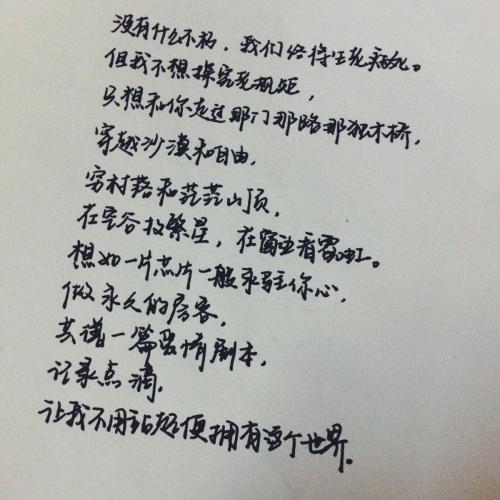 没有什么不朽，我们终将生老病死。
但我不想探究规矩，
只想和你走过那门那路那独木桥，
穿越沙漠和自由，
穷村落和茫茫山顶，
在空谷放繁星，在窗边看霓虹。
想如一片芯片一般永驻你心，
做永久的房客，
共谱一篇爱情剧本，
记录点滴，
让我不用踮起便拥有这个世界。